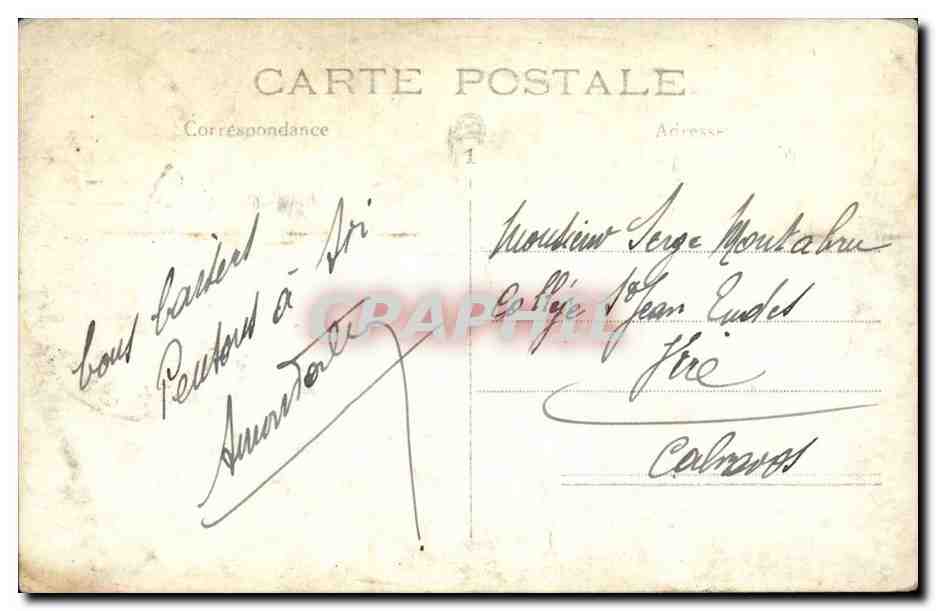 CARTE POSTALE
Correspondance
Adresse
1
bons baisers
Pensons à toi
Monsieur Serge Montabru
Collège St Jean Eudes
Vire
Calvados
CRAPHIL